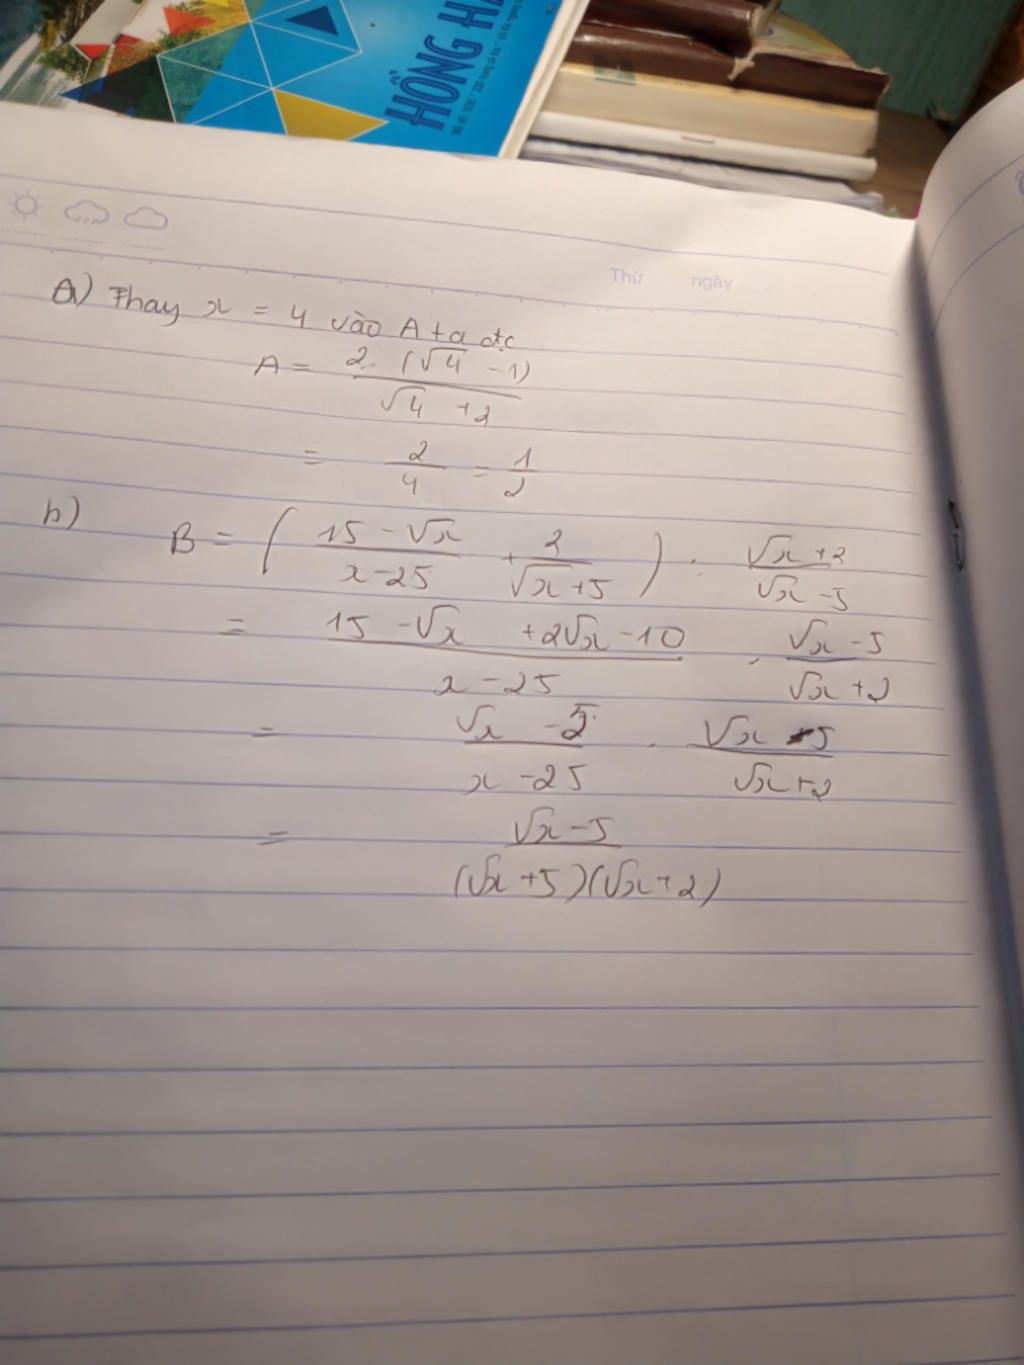 HỒNG HÀ
Thứ ngày
a) Thay x = 4 vào A ta đc
A = 2. (√4 - 1) / √4 + 2
= 2/4 = 1/2
b) B = ( 15 - √x / x - 25 + 2 / √x + 5 ) : √x + 2 / √x - 5
= 15 - √x + 2√x - 10 / x - 25 . √x - 5 / √x + 2
= √x - 5 / x - 25 . √x - 5 / √x + 2
= √x - 5 / (√x + 5)(√x + 2)